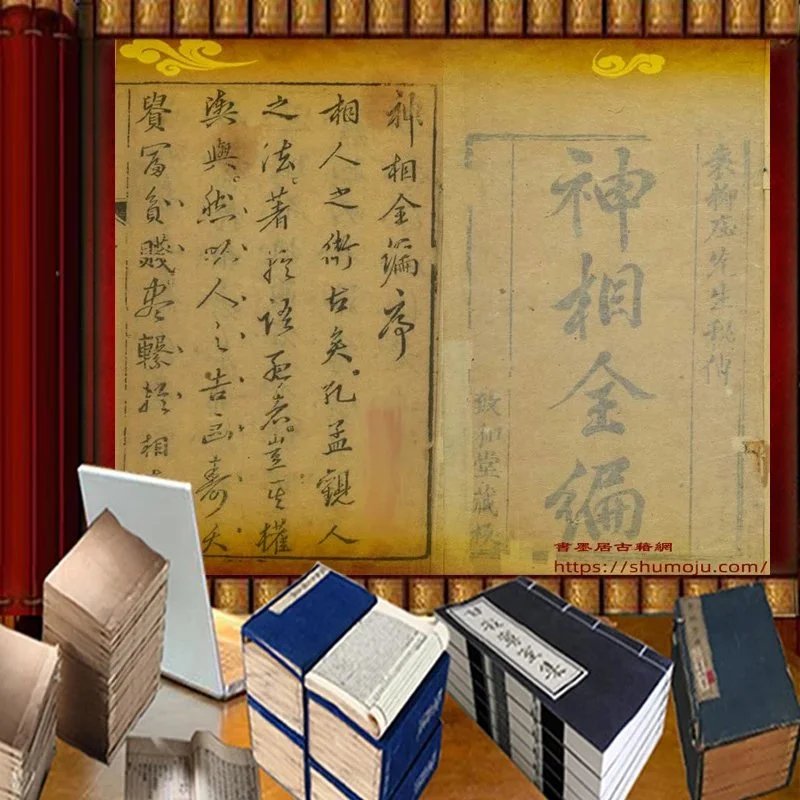 袁柳庄先生秘傳
神相全編
致和堂藏板
神相全編序
相人之術古矣。孔孟觀人
之法著於語孟者豈其權
輿與。然人之吉凶壽夭
貴富貧賤盡繫於相
書墨居古籍網
https://shumoju.com/